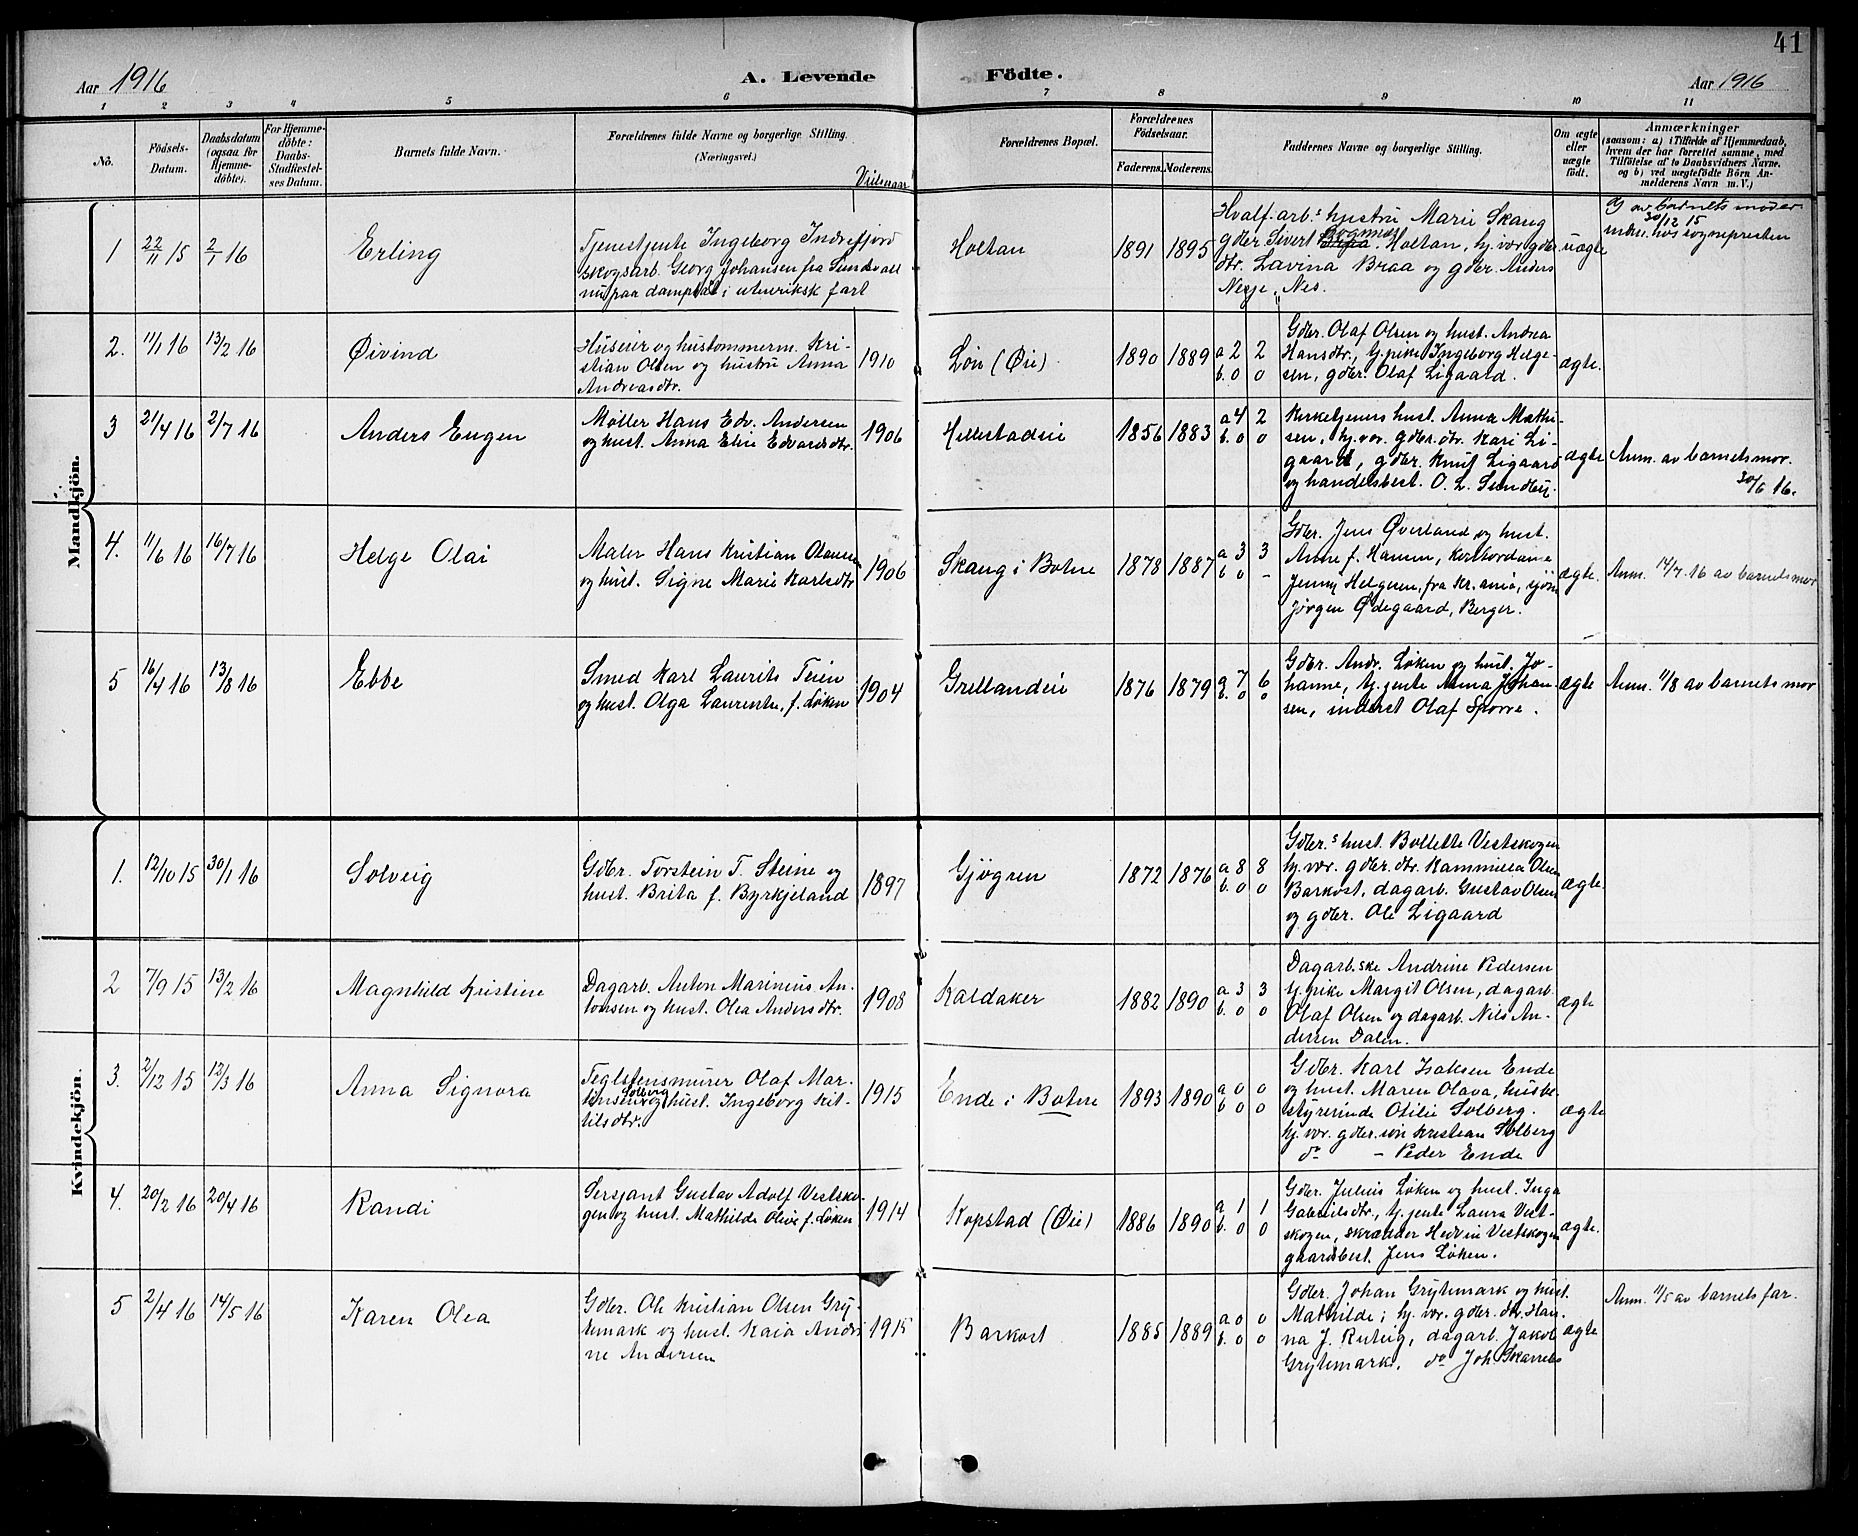 41
Aar 1916
A. Levende Födte.
Aar 1916
1 2 3 4 5 6 7 8 9 10 11
No.
Födsels-
Datum.
Daabsdatum
(ogsaa for
Hjemme-
döbte).
For Hjemme-
döbte:
Daabs-
Stadfæstel-
ses Datum.
Barnets fulde Navn.
Forældrenes fulde Navne og borgerlige Stilling.
(Næringsvei.)
Vielsesaar
Forældrenes Bopæl.
Forældrenes
Födselsaar.
Faderens. Moderens.
Faddernes Navne og borgerlige Stilling.
Om ægte
eller
uægte
födt.
Anmærkninger
(saasom: a) i Tilfælde af Hjemmedaab,
hvem der har forrettet samme, med
Tilföielse af to Daabsvidners Navne,
og b) ved uægtefödte Börn An-
melderens Navn m. V.)
Mandkjön.
1 22/11 15 2/1 16 Erling
Tjenestjente Ingeborg Indrefjord
skogsarb. Georg Johansen fra Sundsvall
nu paa dampbåt i utenriksk fart
Holtan 1891 1895
Hvalf.arb.s hustru Marie Skaug
gdbr Sivert Bogmes Holtan, hj. vær. gdbr.
dtr. Lavina Braa og gdbr. Anders
Nesje, Nes.
uægte
av barnets moder
30/12 15
indm. hos sognepresten
2. 11/1 16 13/2 16 Øivind
Huseier og hustømmerm. Kri-
stian Olsen og hustru Anna
Andreasdtr.
1910 Lön (Øie) 1890 1889 a 2 2
b. 0 0
Gdbr. Olaf Olsen og hust. Andrea
Hansdtr., tj. pike Ingeborg Helge-
sen, gdbr. Olaf Ligaard.
ægte.
3 21/4 16 2/7 16 Anders Eugen
Møller Hans Edv. Andersen
og hust. Anna Elise Edvardsdtr.
1906 Hillestadeie 1856 1883 a 4 2
b. 0 0
Kirketjeners hust. Anna Mathi-
sen, hj. vær. gdbr. dtr. Kari Li-
gaard, gdbr. Knut Ligaard
og handelsbest. O. L. Sundby.
ægte
Anm. av barnets mor.
30/6 16.
4. 11/6 16 16/7 16 Helge Olai
Maler Hans Kristian Olaussen
og hust. Signe Marie Karlsdtr
1906 Skaug i Botne 1878 1887 a 3 3
b 0 -
Gdbr. Jens Øverland og hust.
Anne f. Hansen, korsetordame
Jenny Helgesen, fra Kr.ania, sjöm
Jörgen Ødegaard, Berger.
ægte.
Anm. 14/7.16 av barnets mor
5 16/4 16 13/8 16 Ebbe
Smed Karl Laurits Teien
og hust. Olga Laurentse, f. Løken
1904 Grettandeie 1876 1879 a 7 6
b. 0 0
Gdbr. Andr. Løken og hust. Jo-
hanne, tj. jente Anna Johan-
sen, inderst Olaf Sporre.
ægte
Anm. 11/8 av barnets mor
Kvindekjön.
1. 12/10 15 30/1 16 Solveig
Gdbr. Torstein T. Steine og
hust. Brita f. Byrkjeland
1897 Gjøgren 1872 1876 a 8 8
b. 0 0
Gdbr.s hust. Bollette Vestskogen
hj. vær. gdbr. dtr. Kammilla Olsen
Barkost, dagarb. Gustav Olsen
og gdbr. Ole Ligaard
ægte.
2 7/9 15 13/2 16 Magnhild Kristine
Dagarb. Anton Marinius An-
tonsen og hust. Olea Andersdtr.
1908 Kaldaker 1882 1890 a 3 3
b. 0 0
Dagarb.ske Andrine Pedersen
tj. pike Margit Olsen, dagarb.
Olaf Olsen og dagarb. Nils An-
dersen Dalen.
ægte
3. 2/12 15 12/3 16 Anna Signora
Teglstensmurer Olaf Mar-
kussen Solberg og hust. Ingeborg Kit-
tilsdtr.
1915 Ende i Botne 1893 1890 a 0 0
b 0 0
Gdbr. Karl Isaksen Ende
og hust. Maren Olava, husbe-
styrerinde Otilie Solberg.
hj. vær. gdbr. søn Kristian Solberg
do - Peder Ende
ægte
4. 20/2 16 20/4 16 Randi
Sersjant Gustav Adolf Vestsko-
gen og hust. Mathilde Olise f. Løken
1914 Kopstad (Øie) 1886 1890 a 1 1
b. 0 0
Gdbr. Julius Løken og hust. Inga
Gabrielsdtr., tj. jente Laura Vest-
skogen, skrædder Hedvin Vestskogen
gaardsbest. Jens Løken.
ægte.
5 2/4 16 14/5 16 Karen Olea
Gdbr. Ole Kristian Olsen Gry-
temark og hust. Kaia Andri
ne Andersen
1915 Barkost 1885 1889 a 0 0
b. 0 0
Gdbr. Johan Grytemark og hust.
Mathilde; hj. vær. gdbr. dtr. Han-
na J. Rutvig, dagarb. Jakob
Grytemark, do Joh. Skarrebo
ægte
Anm. 11/5 av barnets far.